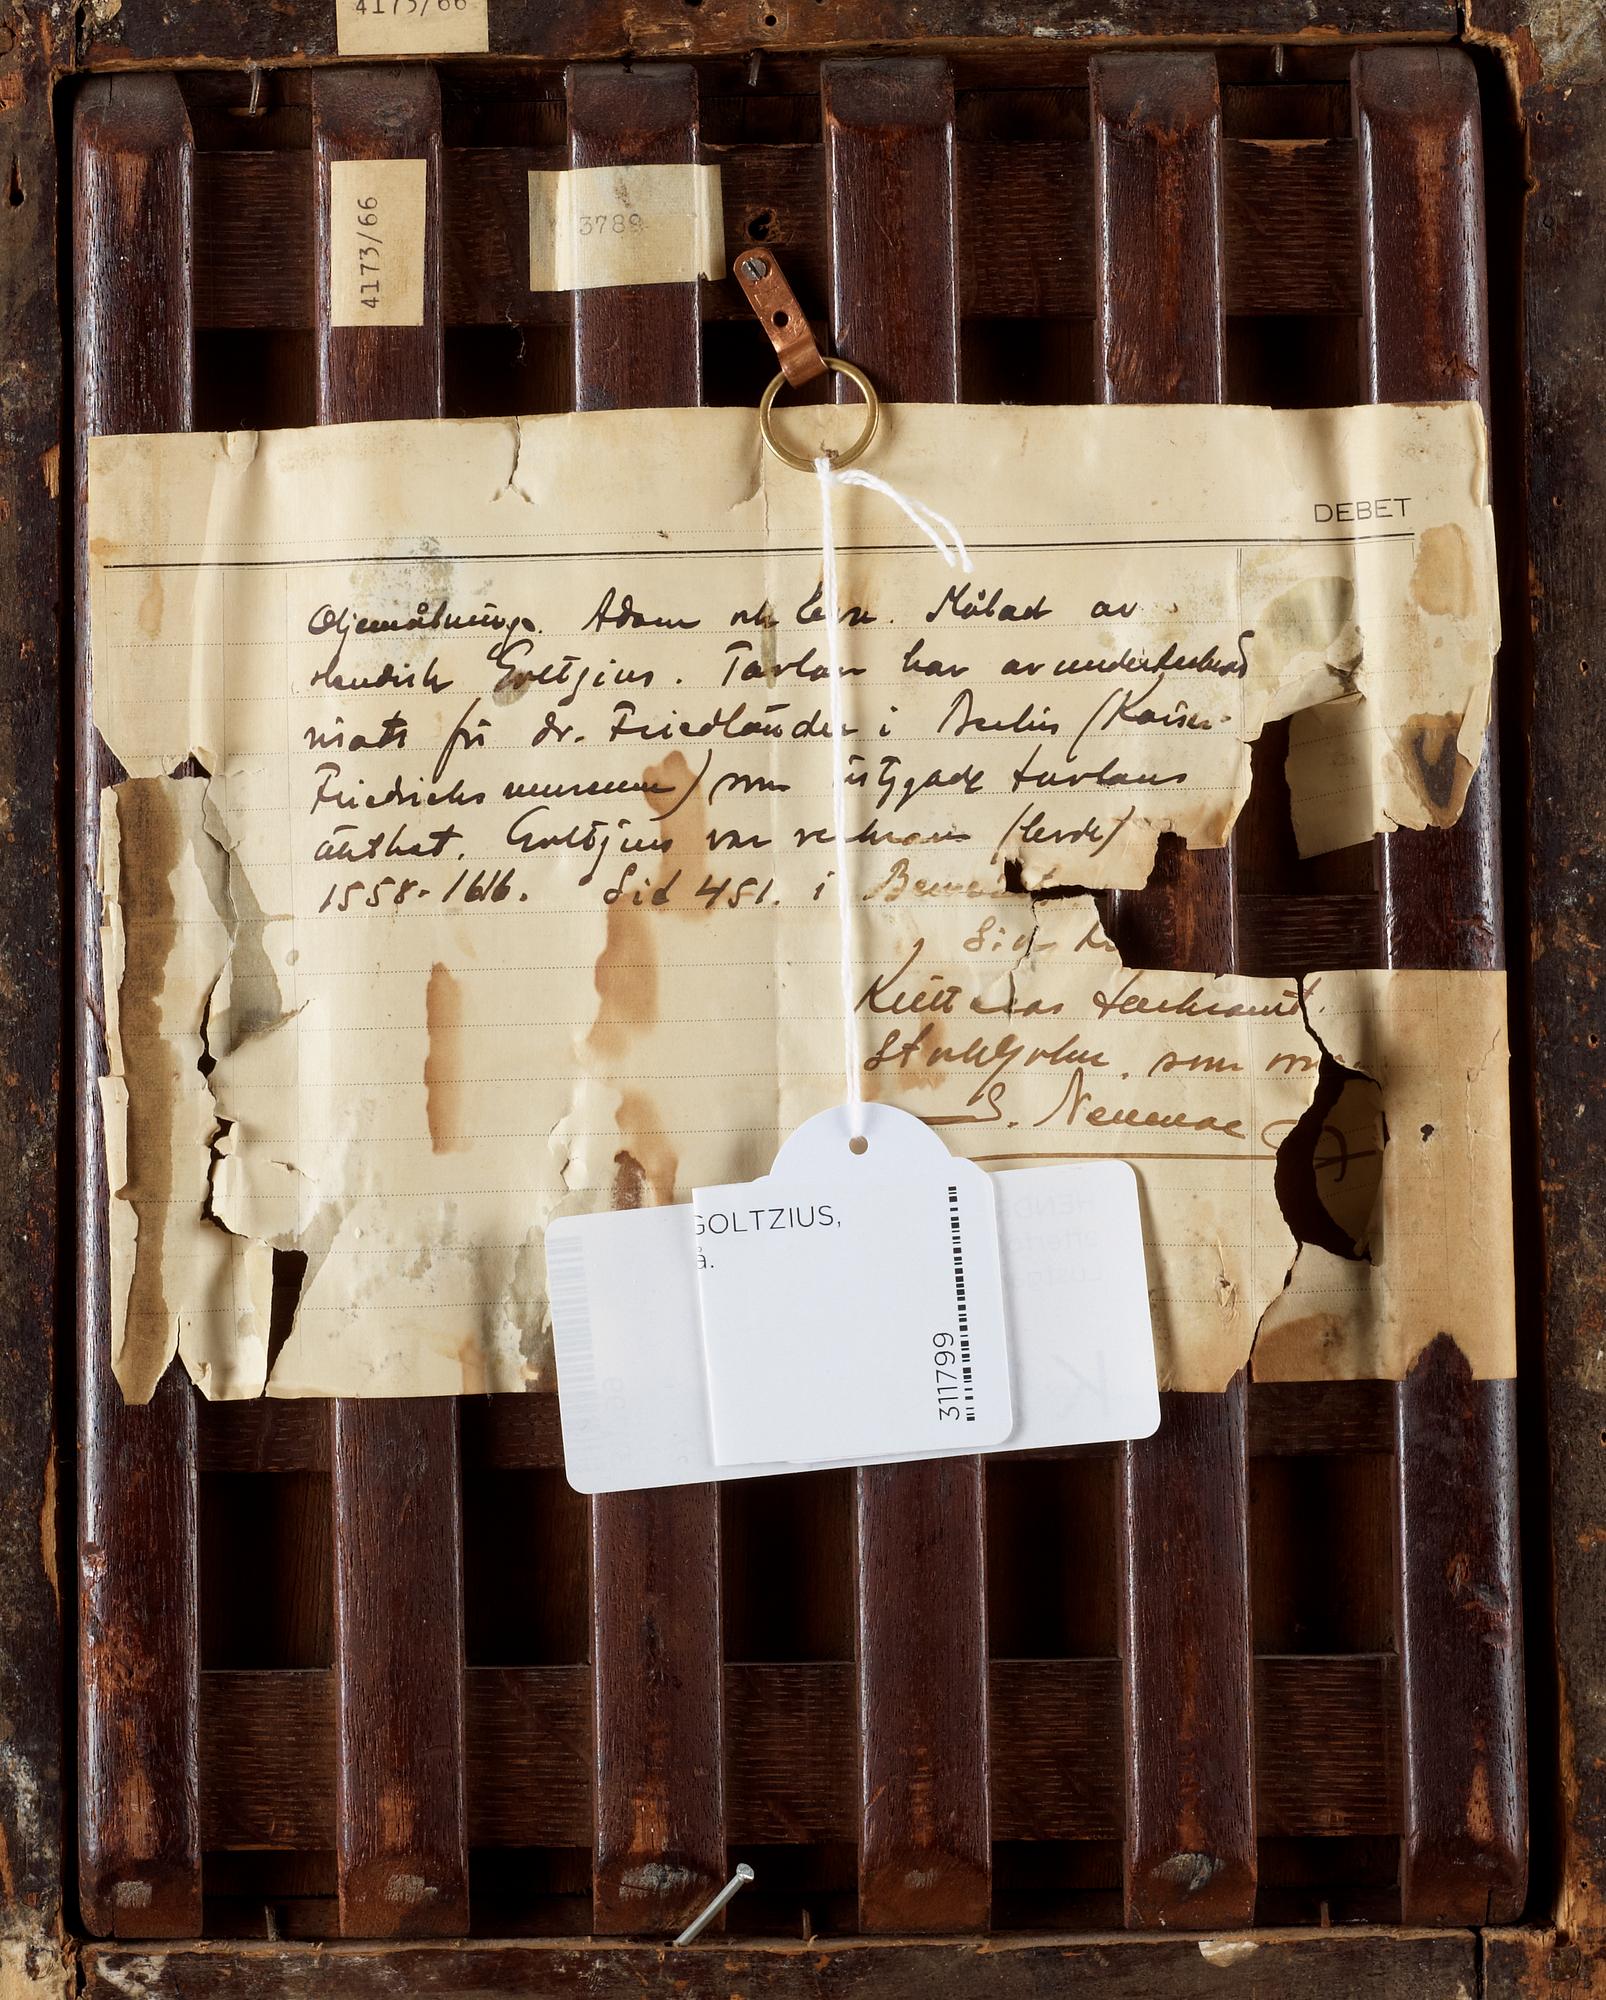 4173/66
4173/66
3789
DEBET
Oljemålning. Adam och Eva. Målad av
Hendrik Goltzius. Tavlan har av undertecknad
visats för dr. Friedländer i Berlin (Kaiser-
Friedrichs museum) som intygade tavlans
äkthet. Goltzius var verksam (levde)
1558-1616. Sid 451. i
Sid
Stockholm, som
S. Neuman
GOLTZIUS,
å.
311799